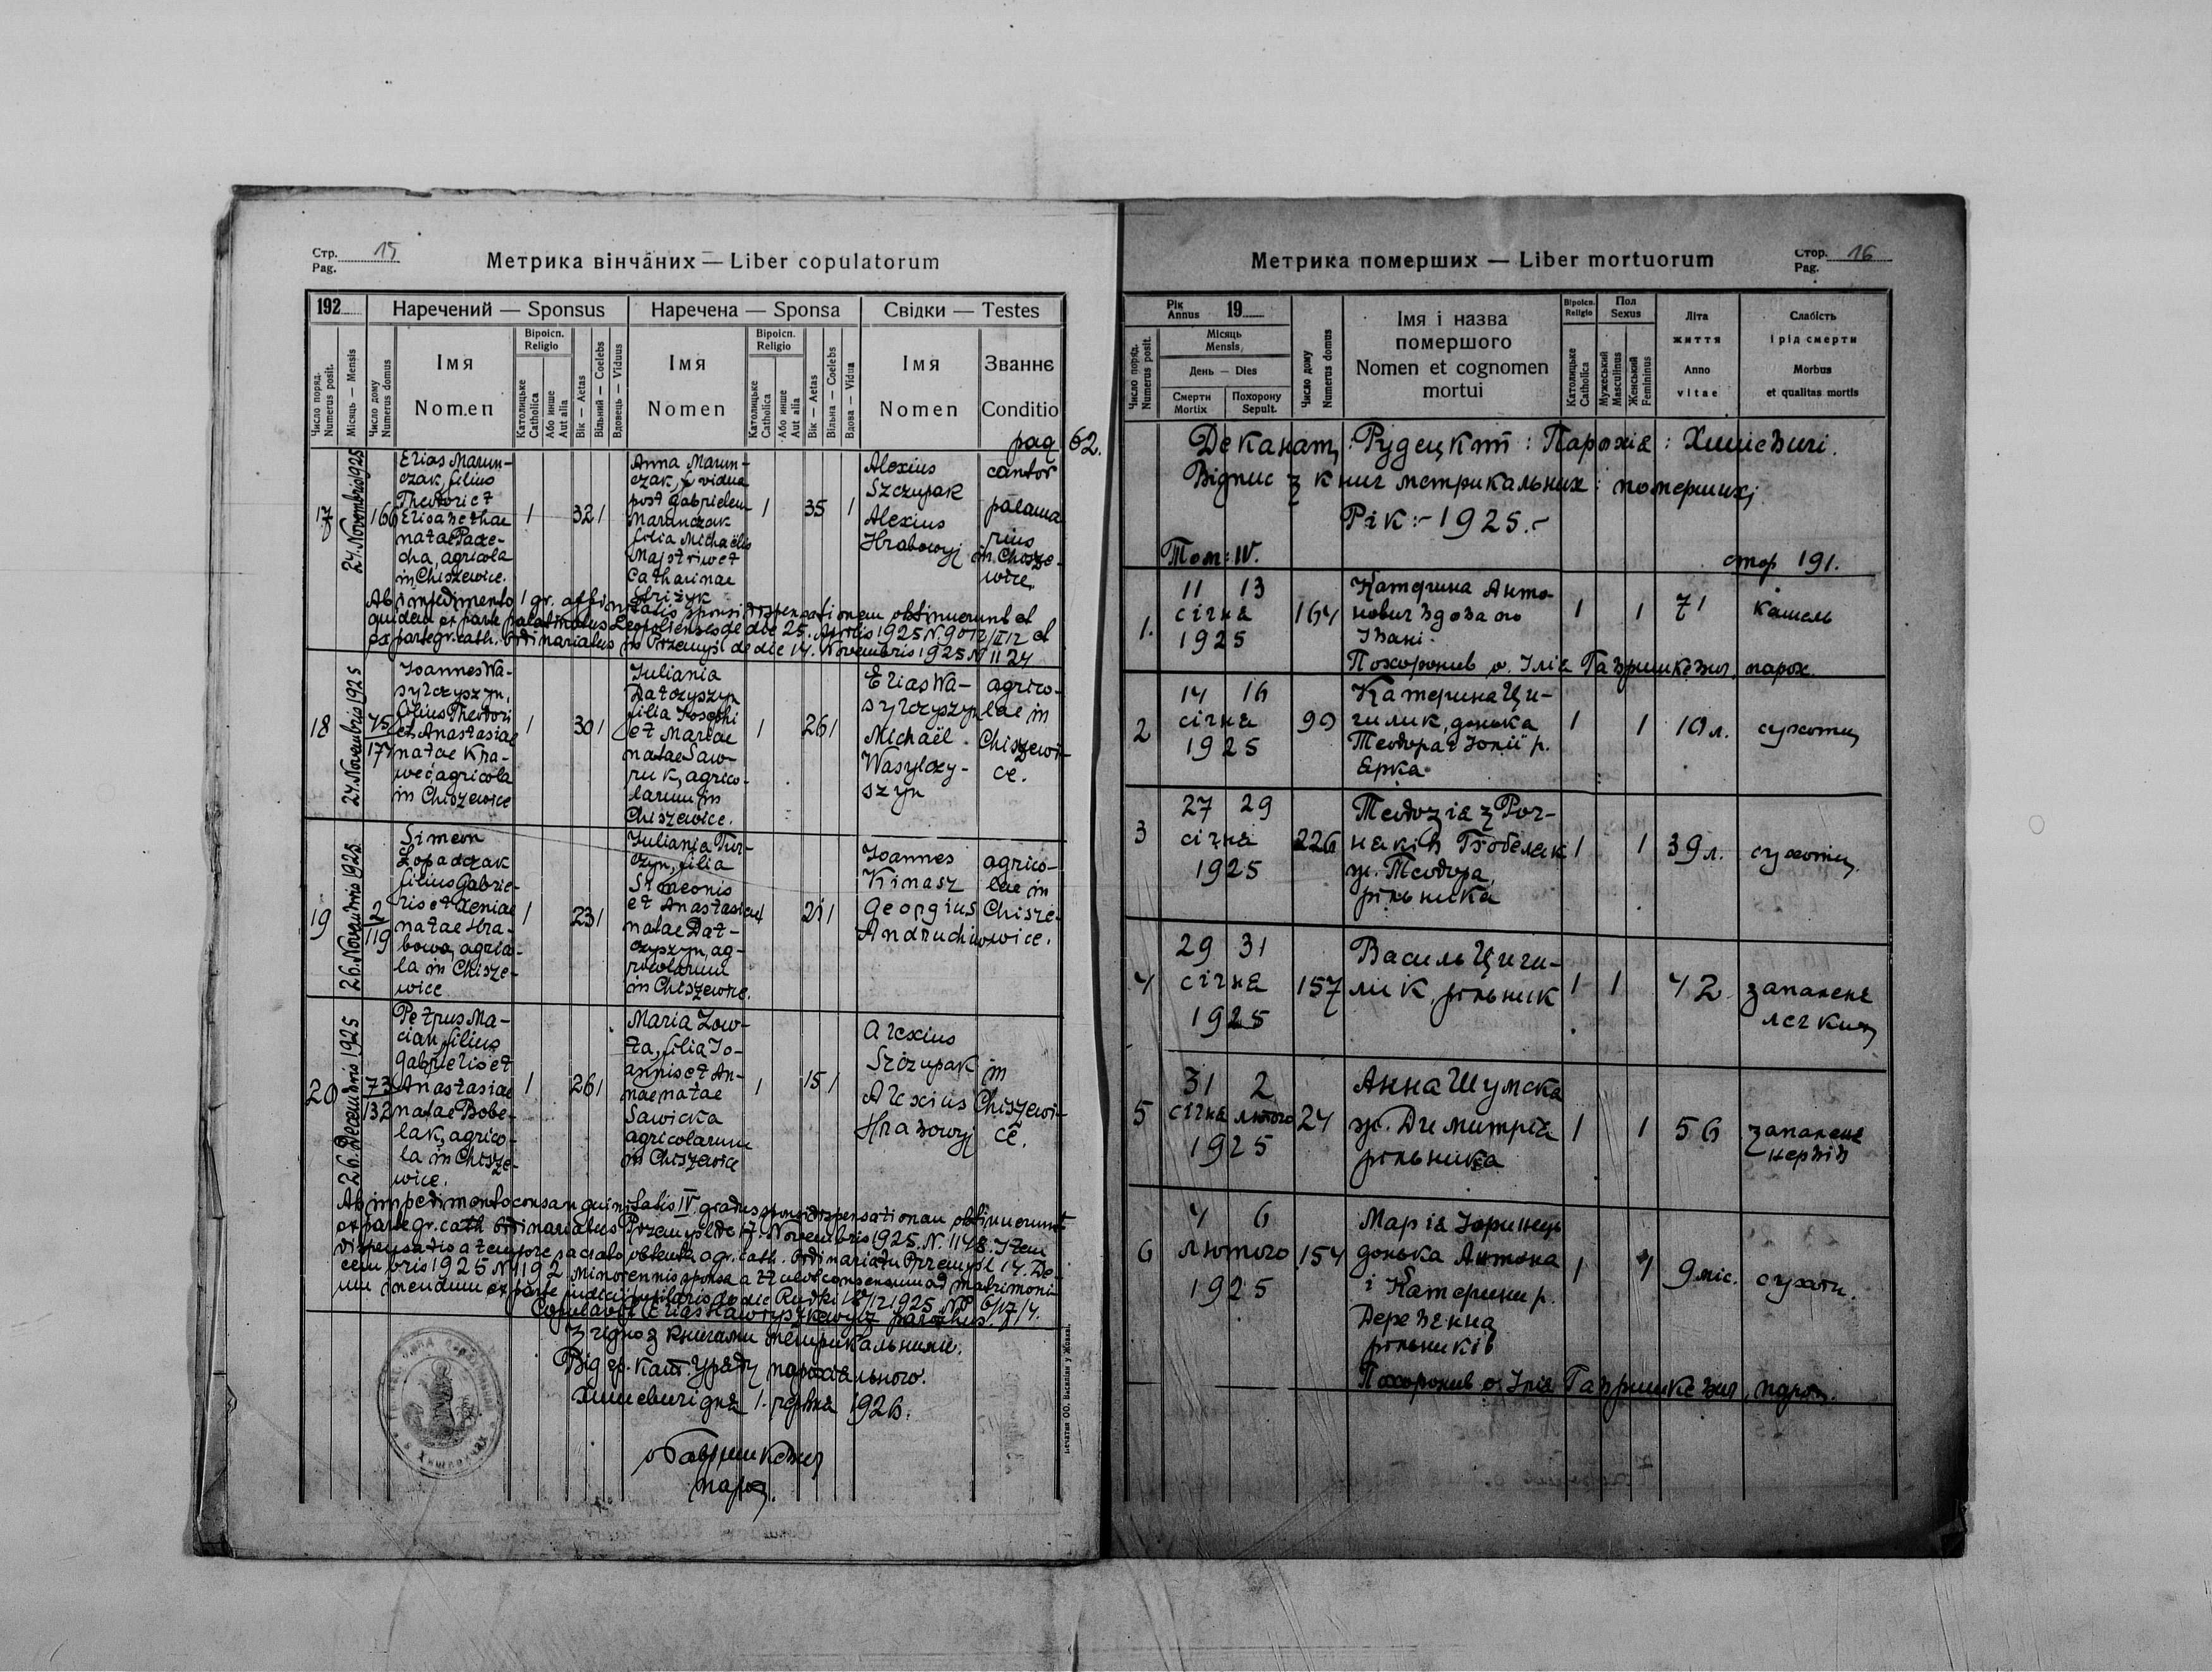 Стр. Pag. 15
Метрика вінчаних — Liber copulatorum
192
Наречений — Sponsus
Наречена — Sponsa
Свідки — Testes
Число поряд. Numerus posit.
Місяць — Mensis
Число дому Numerus domus
Імя Nomen
Віроісп. Religio
Католицьке Catholica
Або инше Aut alia
Вік — Aetas
Вільний — Coelebs
Вдовець — Viduus
Імя Nomen
Віроісп. Religio
Католицьке Catholica
Або инше Aut alia
Вік — Aetas
Вільна — Coelebs
Вдова — Vidua
Імя Nomen
Званнє Conditio
pag 62.
17
24. Novembris 1925
166
Elias Marun-
czak, filius
Theodori et
Elisabethae
natae Pace-
cha, agricola
in Chiszewice.
1
32 1
Anna Marun-
czak, vidua
post Gabrielem
Marunczak
filia Michaëlis
Majstriw et
Catharinae
Striżyk
1
35
1
Alexius
Szczupak
Alexius
Hrabowyj
cantor
palama
rius
in Chisze-
wice.
Ab impedimento 1 gr. affinitatis sponsi dispensationem obtinuerunt et
quidem ex parte palatinatus Leopoliensis de die 25. Aprilis 1925 N. 9012/III 2 et
ex parte gr. cath. Ordinariatus in Przemyśl de die 14. Novembris 1925 N 1124
18
24. Novembris 1925
75
177
Joannes Wa-
sylczyszyn,
filius Theodori
et Anastasiae
natae Kra-
weć, agricola
in Chiszewice
1
30 1
Juliania
Datczyszyn
filia Josephi
et Mariae
natae Saw-
ruk, agrico-
larum in
Chiszewice.
1
26 1
Elias Wa-
sylczyszyn
Michaël
Wasylczy-
szyn
agrico-
lae in
Chiszewi-
ce.
19
26. Novembris 1925
2
119
Simeon
Łopadczak
filius Gabrie-
lis et Xeniae
natae Hra-
bowa, agrico-
la in Chisze-
wice
1
23 1
Juliania Tur-
czyn, filia
Simeonis
et Anastasiae
natae Dat-
czyszyn, ag-
ricolarum
in Chiszewice.
1
21 1
Joannes
Kinasz
Georgius
Andruchiw
agrico-
lae in
Chisze-
wice.
20
26. Decembris 1925
73
132
Petrus Ma-
cian, filius
Gabrielis et
Anastasiae
natae Bobe-
lak, agrico-
la in Chisze-
wice.
1
26 1
Maria Zow-
ta, filia Jo-
annis et An-
nae natae
Sawicka
agricolarum
in Chiszewice
1
15 1
Alexius
Szczupak
Alexius
Hrabowyj
in
Chiszewi-
ce.
Ab impedimento consanguinitatis IV. gradus sponsi dispensationem obtinuerunt
ex parte gr. cath. Ordinariatus Przemyśl de 17. Novembris 1925. N. 1148. Item
dispensatio a tempore sacrato obtenta a gr. cath. Ordinariatu Przemyśl 14. De-
cembris 1925 N 1192. Minorennis sponsa attulit consensum ad matrimoni-
um ineundum ex parte judicii pupilaris de die Rudki 18/12 1925 No 6/17/4.
Copulavit Elias Hawryszkewycz parochus.
Згідно з книгами метрикальними.
Від гр. кат. Уряду парохіяльного.
Хишевичі дня 1. червня 1926.
о Гавришкевич
парох.
Печатня ОО. Василіян у Жовкві.
Метрика померших — Liber mortuorum
Стор. Pag. 16
Рік Annus 19
Число поряд. Numerus posit.
Місяць Mensis
День — Dies
Смерти Mortix
Похорону Sepult.
Число дому Numerus domus
Імя і назва
помершого
Nomen et cognomen
mortui
Віроісп. Religio
Католицьке Catholica
Пол Sexus
Мужеський Masculinus
Женський Femininus
Літа життя
Anno vitae
Слабість і рід смерти
Morbus et qualitas mortis
Деканат: Рудецкий: Парохія: Хишевичі.
Відпис з книг метрикальних: померших;
Рік:- 1925.-
Том: IV.
стор 191.
1.
11 13
січня
1925
164
Катерина Анто-
нович вдова по
Івані.
1
1
71
кашель
Похоронив о. Ілія Гавришкевич, парох.
2
14 16
січня
1925
99
Катерина Ци-
гилик, донька
Теодора і Юлії р.
Ярка
1
1
10 л.
сухоти
3
27 29
січня
1925
226
Теодозія з Роч-
няків Бобеляк
ж. Теодора,
рільника
1
1
39 л.
сухоти
4
29 31
січня
1925
157
Василь Циги-
лик, рільник
1
1
42
запалене
легких
5
31 2
січня лютого
1925
24
Анна Шумска
ж. Димитрія
рільника
1
1
56
запалене
нервів
6
4 6
лютого
1925
154
Марія Юринець
донька Антона
і Катерини р.
Деревянна
рільників
1
1
9 міс.
сухоти.
Похоронив о. Ілія Гавришкевич, парох.